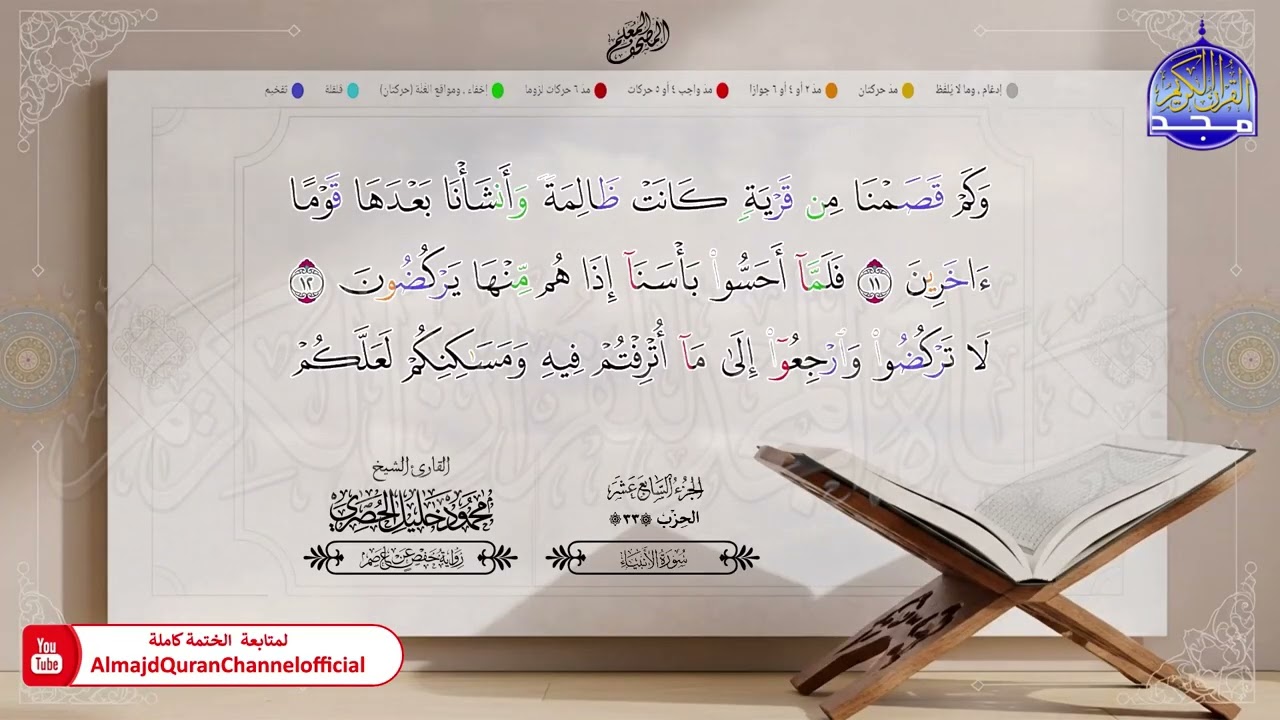 المصحف المعلم
القرآن الكريم
مجد
إدغام ، وما لا يُلفظ
مدّ حركتان
مدّ ٢ أو ٤ أو ٦ جوازا
مدّ واجب ٤ أو ٥ حركات
مدّ ٦ حركات لزوما
إخفاء ، ومواقع الغُنّة (حركتان)
قلقلة
تفخيم
وَكَمْ قَصَمْنَا مِن قَرْيَةٍ كَانَتْ ظَالِمَةً وَأَنشَأْنَا بَعْدَهَا قَوْمًا
ءَاخَرِينَ ١١ فَلَمَّآ أَحَسُّوا۟ بَأْسَنَآ إِذَا هُم مِّنْهَا يَرْكُضُونَ ١٢
لَا تَرْكُضُوا۟ وَٱرْجِعُوٓا۟ إِلَىٰ مَآ أُتْرِفْتُمْ فِيهِ وَمَسَـٰكِنِكُمْ لَعَلَّكُمْ
الجزء السابع عشر
الحزب ٣٣
سورة الأنبياء
القارئ الشيخ
محمود خليل الحصري
رواية حفص عن عاصم
لمتابعة الختمة كاملة
You
Tube
AlmajdQuranChannelofficial